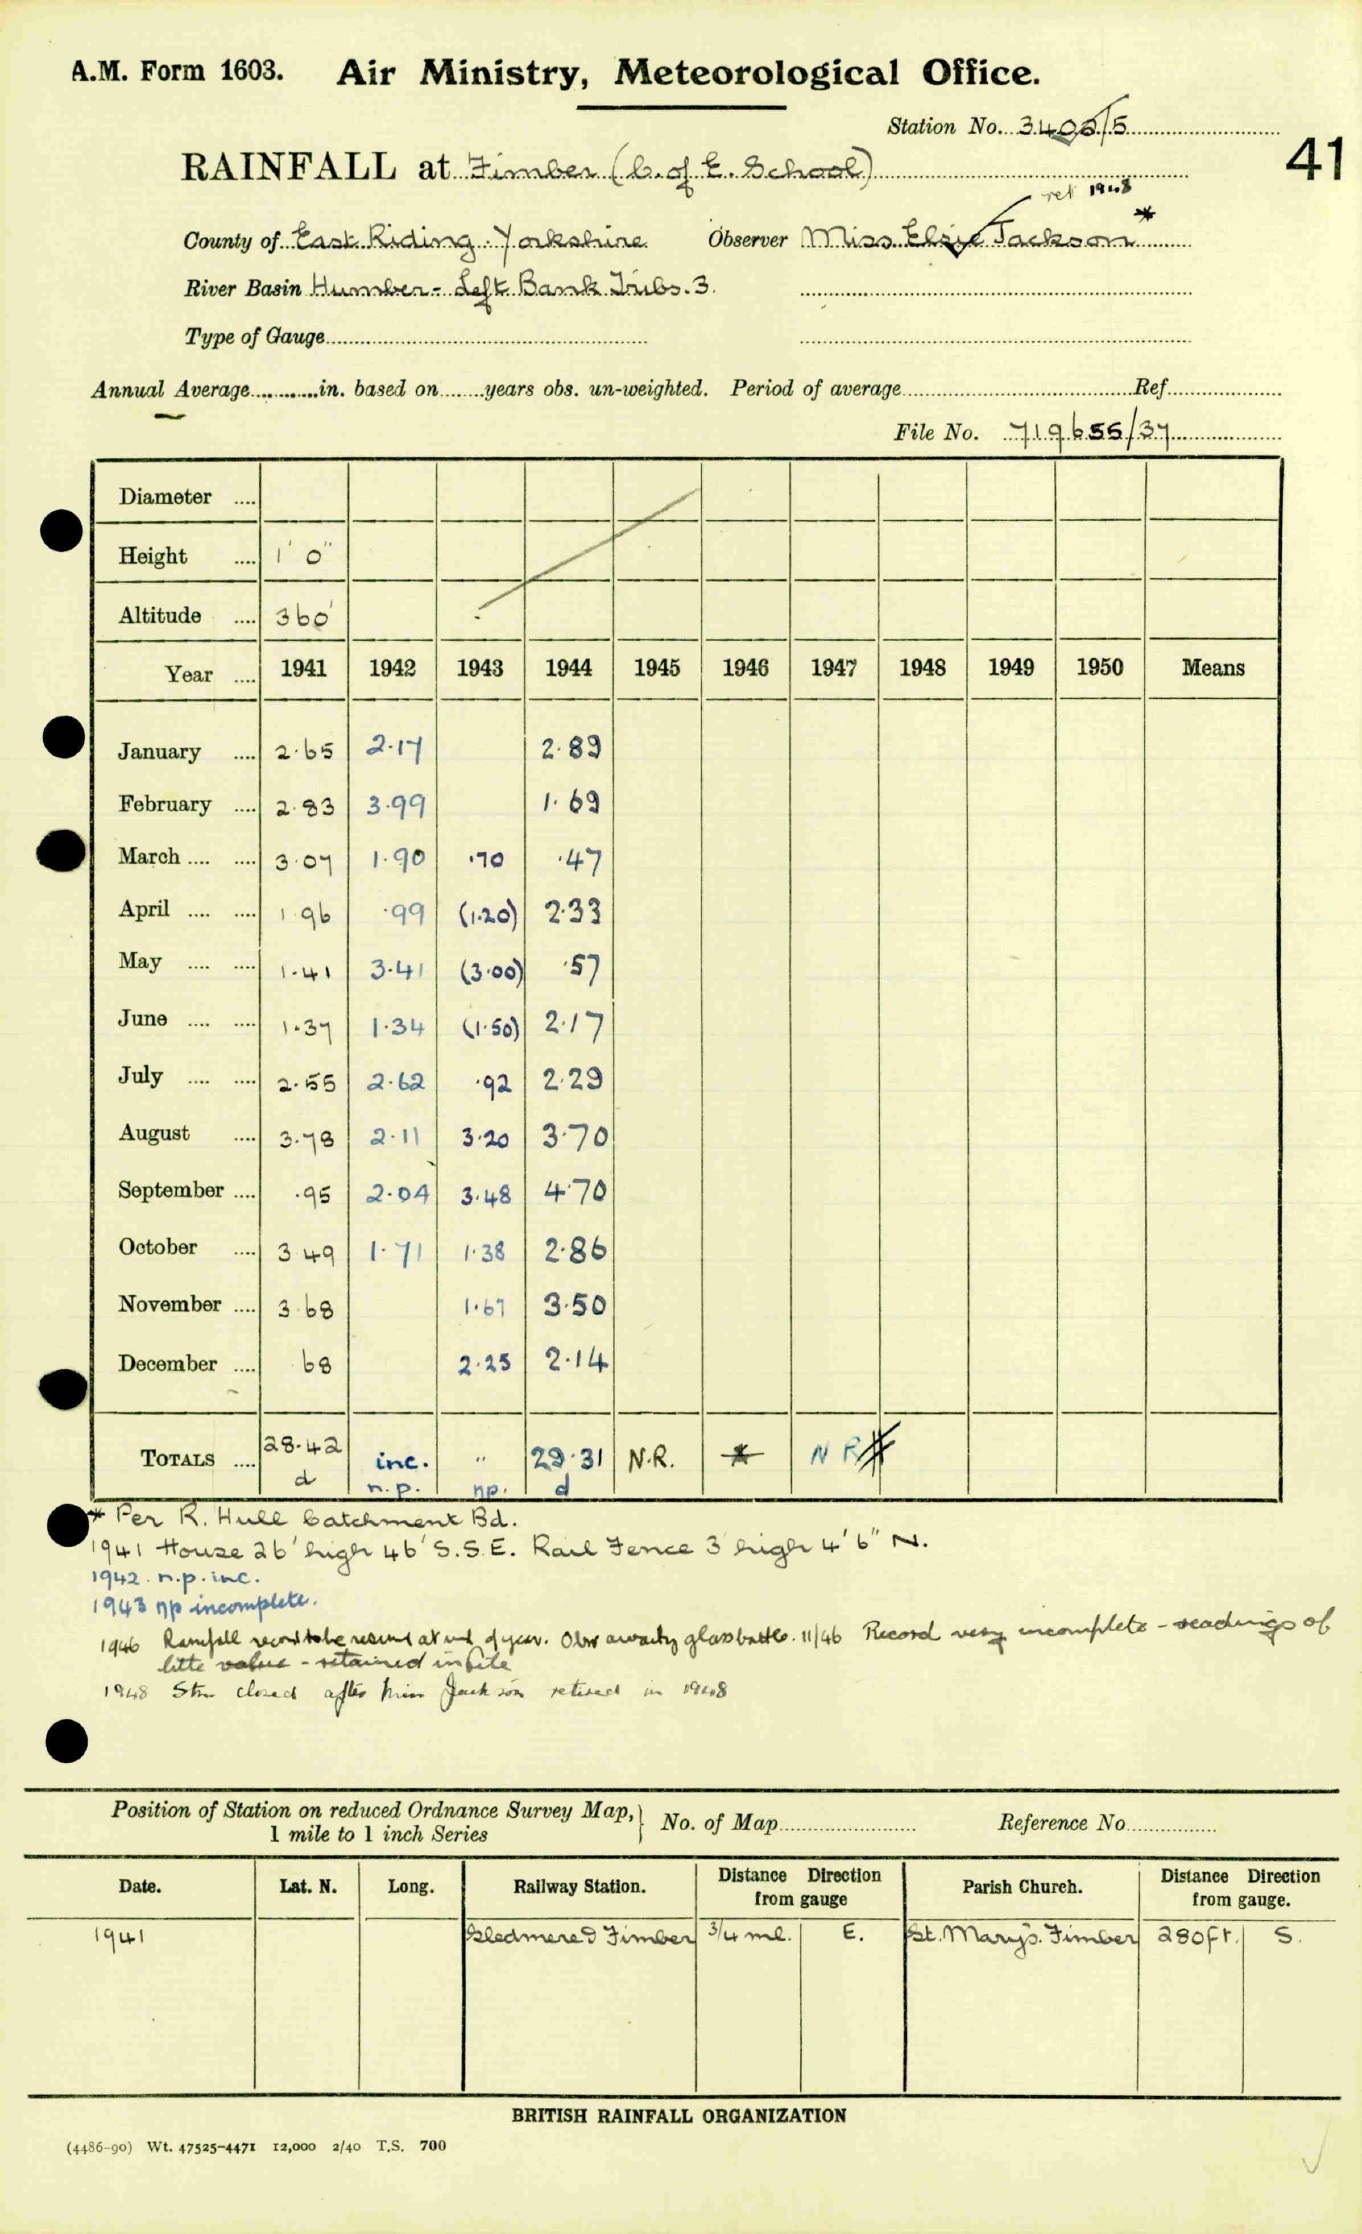 A.M. Form 1603. Air Ministry, Meteorological Office.
Station No. 3406/5
41
RAINFALL at Fimber (C. of E. School)
ret 1948
County of East Riding. Yorkshire Observer Miss Elsie Jackson *
River Basin Humber - Left Bank Tribs. 3.
Type of Gauge
Annual Average in. based on years obs. un-weighted. Period of average Ref.
File No. 719655/37
Diameter
Height 1' 0"
Altitude 360'
Year 1941 1942 1943 1944 1945 1946 1947 1948 1949 1950 Means
January 2.65 2.17 2.89
February 2.83 3.99 1.69
March 3.07 1.90 .70 .47
April 1.96 .99 (1.20) 2.33
May 1.41 3.41 (3.00) .57
June 1.37 1.34 (1.50) 2.17
July 2.55 2.62 .92 2.29
August 3.78 2.11 3.20 3.70
September .95 2.04 3.48 4.70
October 3.49 1.71 1.38 2.86
November 3.68 1.67 3.50
December 68 2.25 2.14
TOTALS 28.42 inc. " 29.31 N.R. * N R
d n.p. np. d
* Per R. Hull Catchment Bd.
1941 House 26' high 46' S.S.E. Rail Fence 3' high 4' 6" N.
1942. n.p. inc.
1943 np incomplete.
1946 Rainfall record to be resumed at end of year. Obsr awaiting glass bottle. 11/46 Record very incomplete - readings of
little value - retained in file
1948 Stn closed after Miss Jackson retired in 1948
Position of Station on reduced Ordnance Survey Map, 1 mile to 1 inch Series } No. of Map Reference No
Date. Lat. N. Long. Railway Station. Distance Direction from gauge Parish Church. Distance Direction from gauge.
1941 Sledmere & Fimber 3/4 ml. E. St. Mary's. Fimber 280 ft. S.
BRITISH RAINFALL ORGANIZATION
(4486-90) Wt. 47525-4471 12,000 2/40 T.S. 700